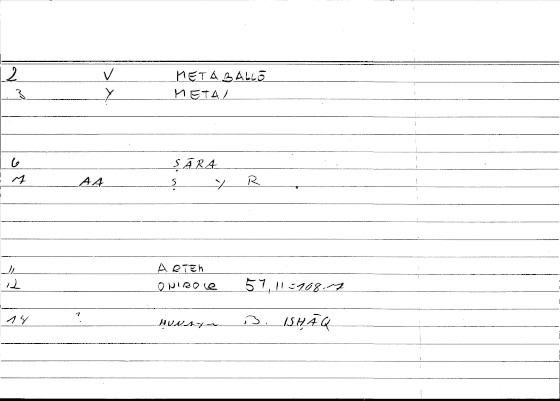 2 V METABALLŌ
3 Y META/
6 ṢĀRA
7 AA Ṣ Y R .
11 ARTEM
12 ONIROCR 57,11=108.7
14 ḤUNAYN B. ISḤĀQ